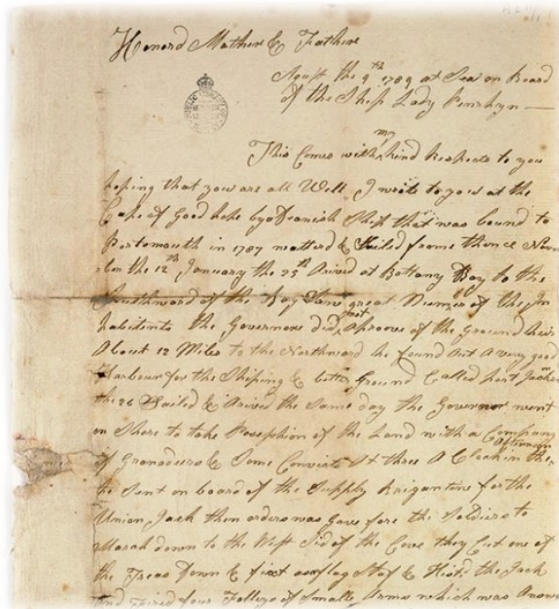 Honord Mother & Father
Agust the 9th 1789 at Sea on Board
of the Ship Lady Penrhyn
my
This Comes with kind Respects to you
hoping that you are all Well I write to you at the
Cape of Good hope by a Deanish Ship that was bound to
Portsmouth in 1787 & Sailed frome thence Novm
ber the 12th January the 25th Arived at Bottany Bay to the
Southward of the Bay Saw great Numer of the In
habitents the Governore did not Aproove of the Ground hear
About 12 Miles to the Northward he found Out A very good
Harbour for the Shiping & better Ground Called port Jackn
the 26 Sailed & Arived the Same day the Governor went
on Shore to take Possesion of the Land with a Company
of Granadeers & Some Convicts At three A Clock in the Afternoon
he Sent on board of the Supply Brigantine for the
Union Jack then orders was Gave fore the Soldiers to
Marsh down to the West Sid of the Cove they Cut one of
the Trees Down & fixt as flag Staf & Histd the Jack
And Fired four Folleys of Smalle Arms which was